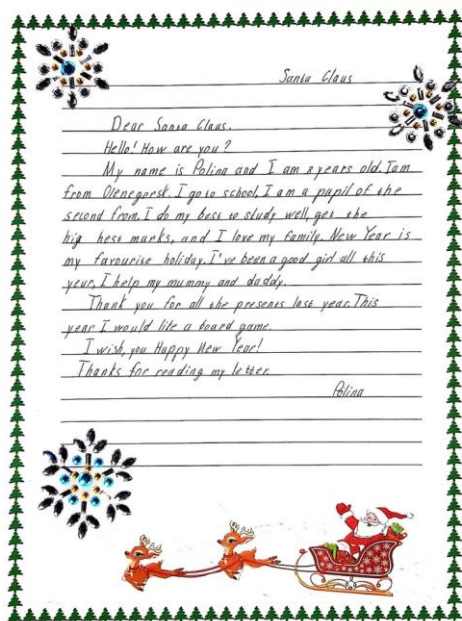 Santa Claus
Dear Santa Claus.
Hello! How are you?
My name is Polina and I am 8 years old. I am
from Olenegorsk. I go to school, I am a pupil of the
second from. I do my best to study well, get the
hig hest marks, and I love my family. New Year is
my favourite holiday. I've been a good girl all this
year, I help my mummy and daddy.
Thank you for all the presents last year. This
year I would like a board game.
I wish, you Happy New Year!
Thanks for reading my letter.
Polina